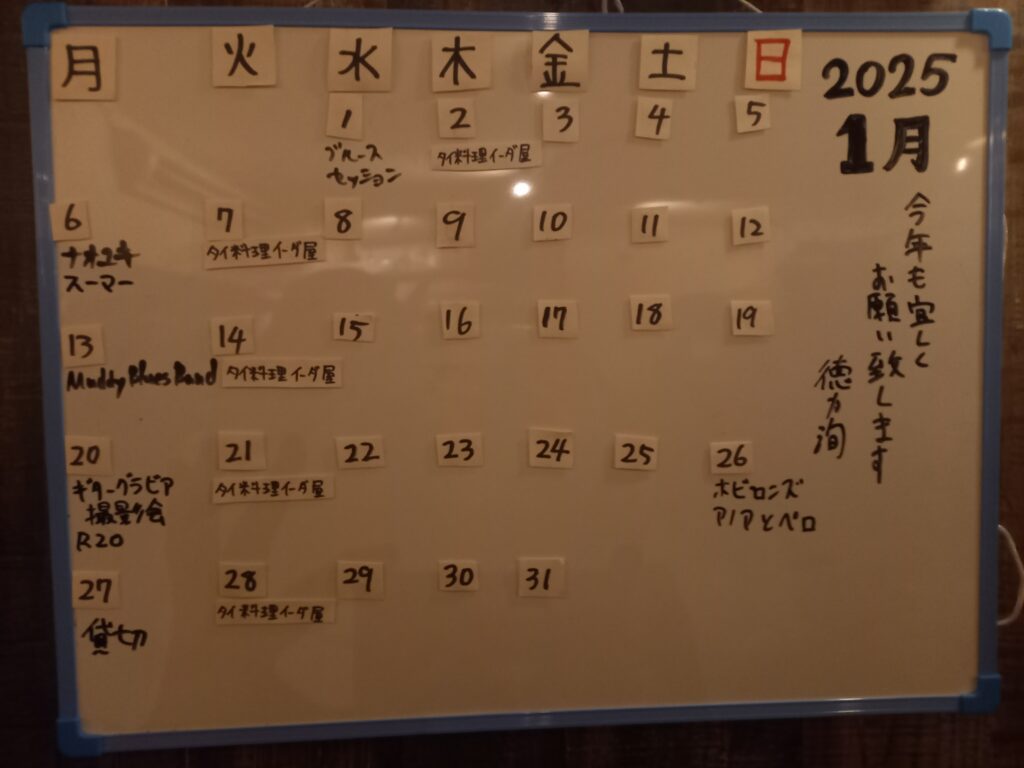 月 火 水 木 金 土 日
2025
1月
1 2 3 4 5
ブルース
セッション
タイ料理イーダ屋
6 7 8 9 10 11 12
ナオユキ
スーマー
タイ料理イーダ屋
13 14 15 16 17 18 19
Muddy Blues Band
タイ料理イーダ屋
20 21 22 23 24 25 26
ギターグラビア
撮影会
R20
タイ料理イーダ屋
ホビロンズ
アノアとペロ
27 28 29 30 31
貸切
タイ料理イーダ屋
今年も宜しく
お願い致します
徳力洵